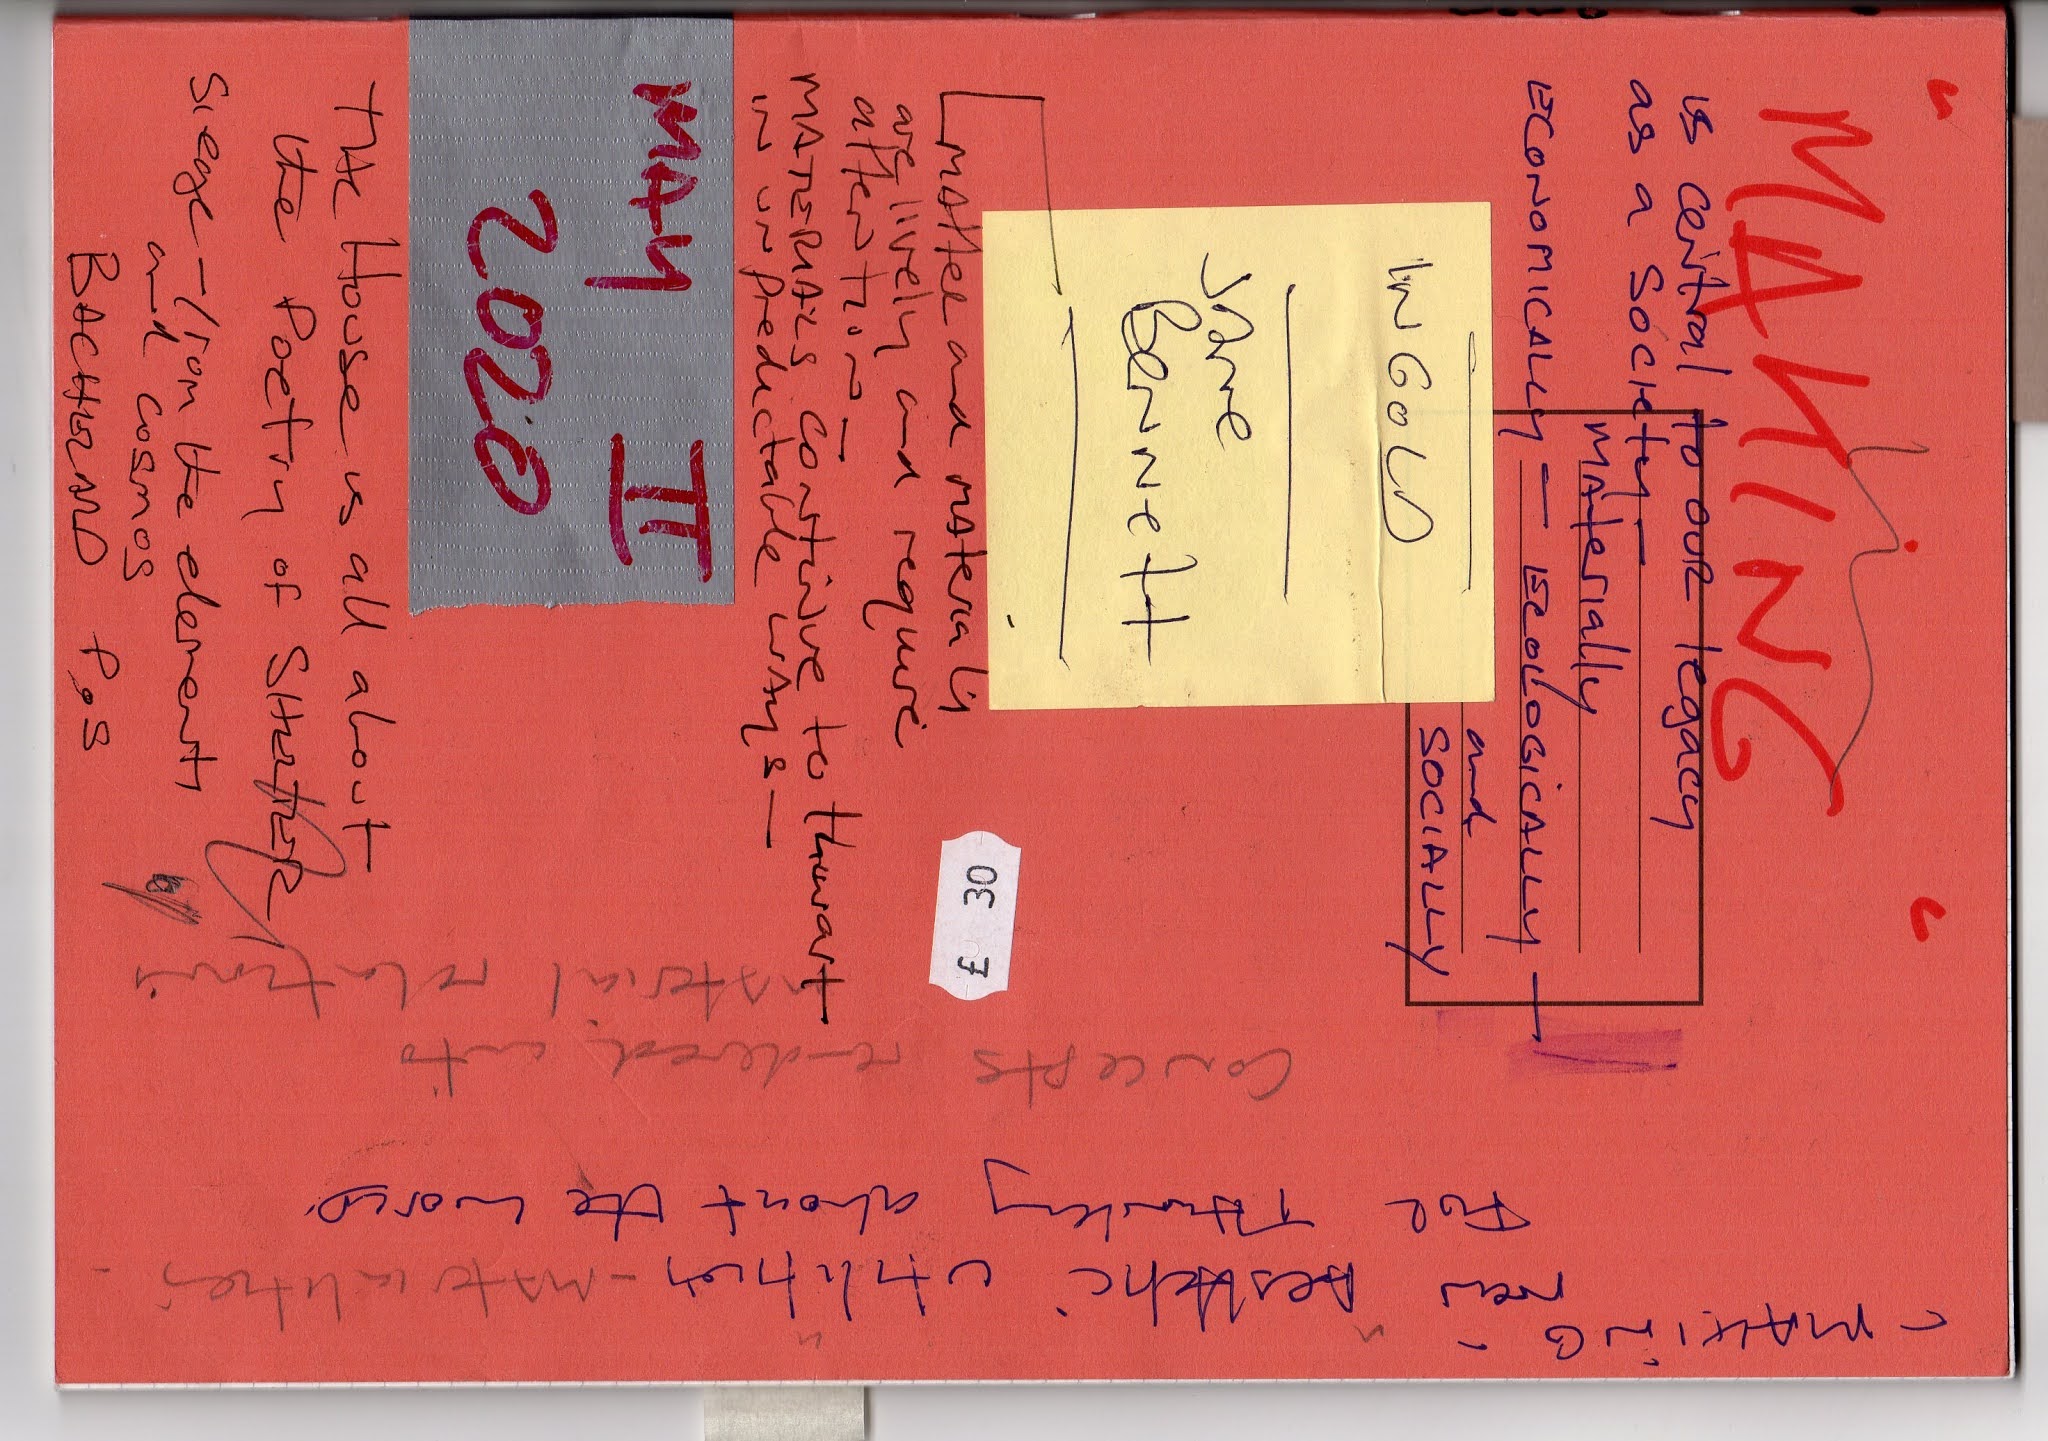 " MAKING "
is central to our legacy
as a Society —
MAterially
ECONOMICALLY — ECOLOGICALLY —
and
SOCIALLY
INGOLD
Jane
Bennett
MAtter and materials
are lively and require
attention —
MATERIALS continue to thwart
in unpredictable ways —
MAY II
2020
£ 30
THE House is all about
the Poetry of SHELTER
Siege — from the elements
and cosmos
BACHELARD P.S
- MAKING '
new " Aesthetic entities " - materialities -
FOR Thinking about the world.
Concepts rendered into
material relations